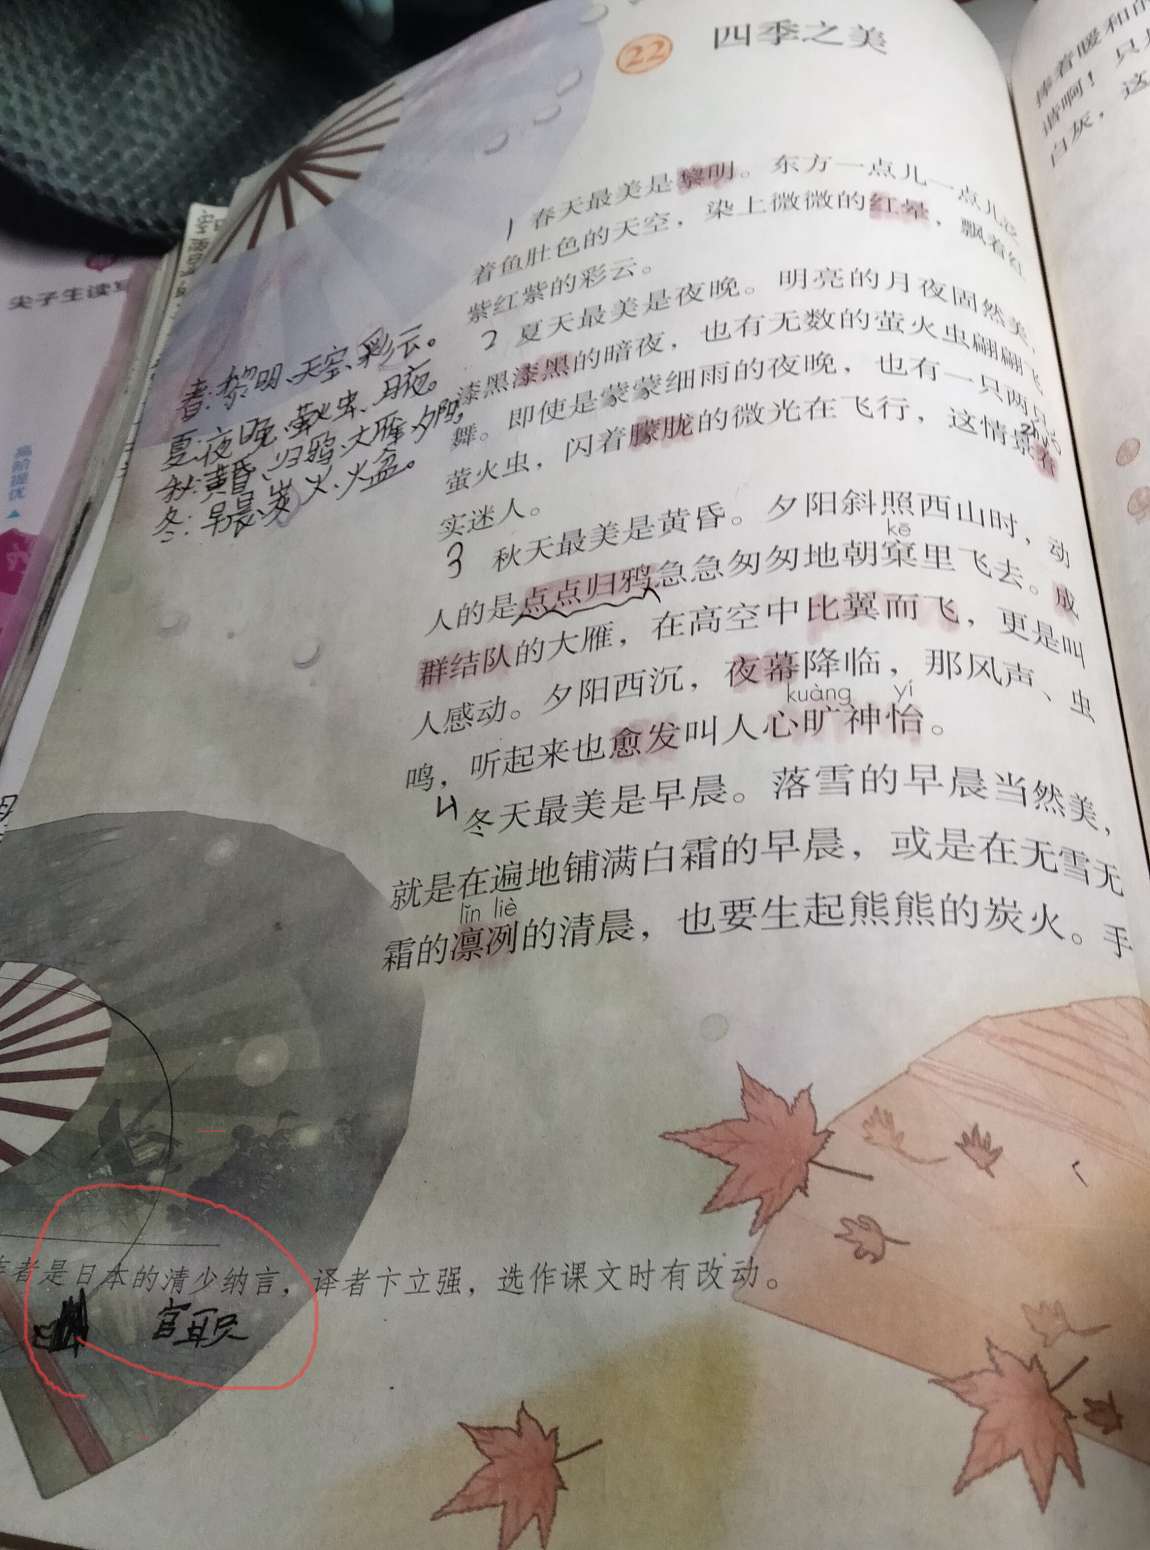 22 四季之美
1 春天最美是黎明。东方一点儿一点儿
着鱼肚色的天空，染上微微的红晕，飘着红
紫红紫的彩云。
2 夏天最美是夜晚。明亮的月夜固然美，
漆黑漆黑的暗夜，也有无数的萤火虫翩翩飞
舞。即使是蒙蒙细雨的夜晚，也有一只两只
萤火虫，闪着朦胧的微光在飞行，这情景着
实迷人。
3 秋天最美是黄昏。夕阳斜照西山时，动
kē
人的是点点归鸦急急匆匆地朝窠里飞去。成
群结队的大雁，在高空中比翼而飞，更是叫
人感动。夕阳西沉，夜幕降临，那风声、虫
kuàng yí
鸣，听起来也愈发叫人心旷神怡。
4 冬天最美是早晨。落雪的早晨当然美，
就是在遍地铺满白霜的早晨，或是在无雪无
lǐn liè
霜的凛冽的清晨，也要生起熊熊的炭火。手
春:黎明、天空、彩云。
夏:夜晚、萤火虫、月夜。
秋:黄昏、归鸦、大雁、夕阳,
冬:早晨、炭火、火盆。
者是日本的清少纳言，译者卞立强，选作课文时有改动。
官职
捧着暖和的
谐啊！只
白灰，这
尖子生读写
高阶提优